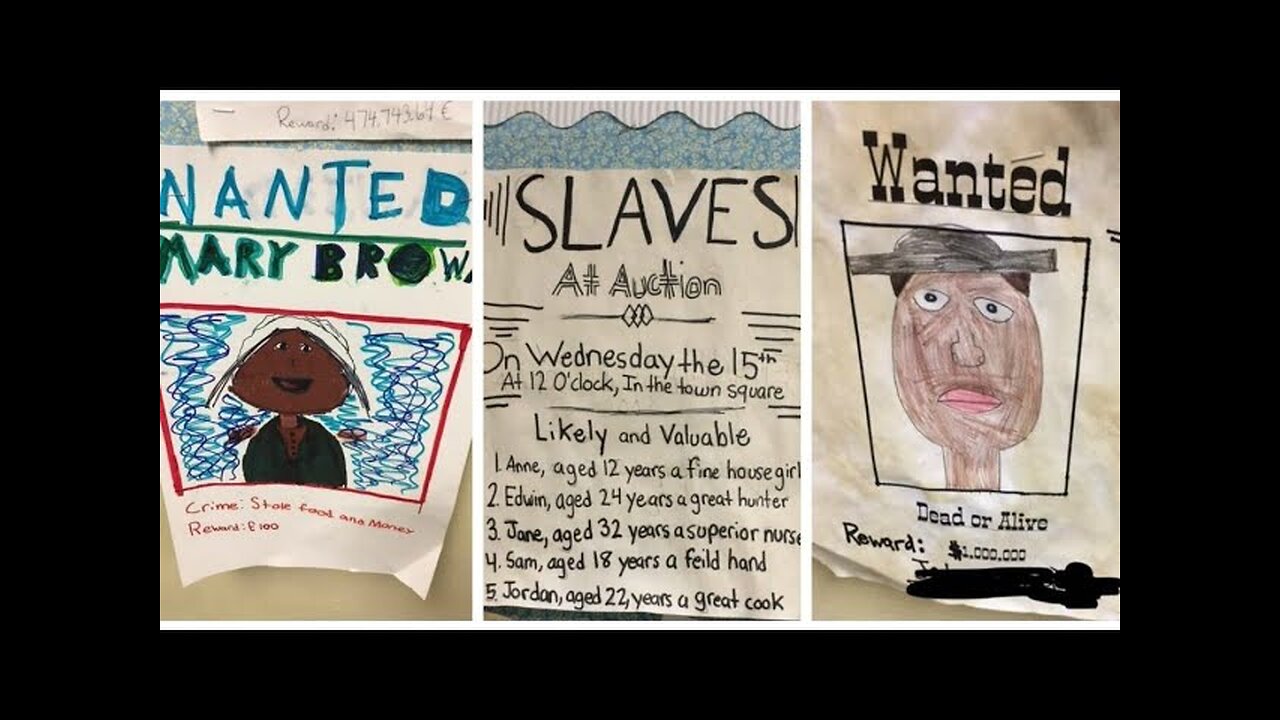 Reward: 474,743.61 €
WANTED
MARY BROW
Crime: Stole food and Money
Reward: £100
SLAVES
At Auction
On Wednesday the 15th
At 12 O'clock, In the town square
Likely and Valuable
1. Anne, aged 12 years a fine house girl
2. Edwin, aged 24 years a great hunter
3. Jane, aged 32 years a superior nurse
4. Sam, aged 18 years a feild hand
5. Jordan, aged 22, years a great cook
Wanted
Dead or Alive
Reward: $1,000,000